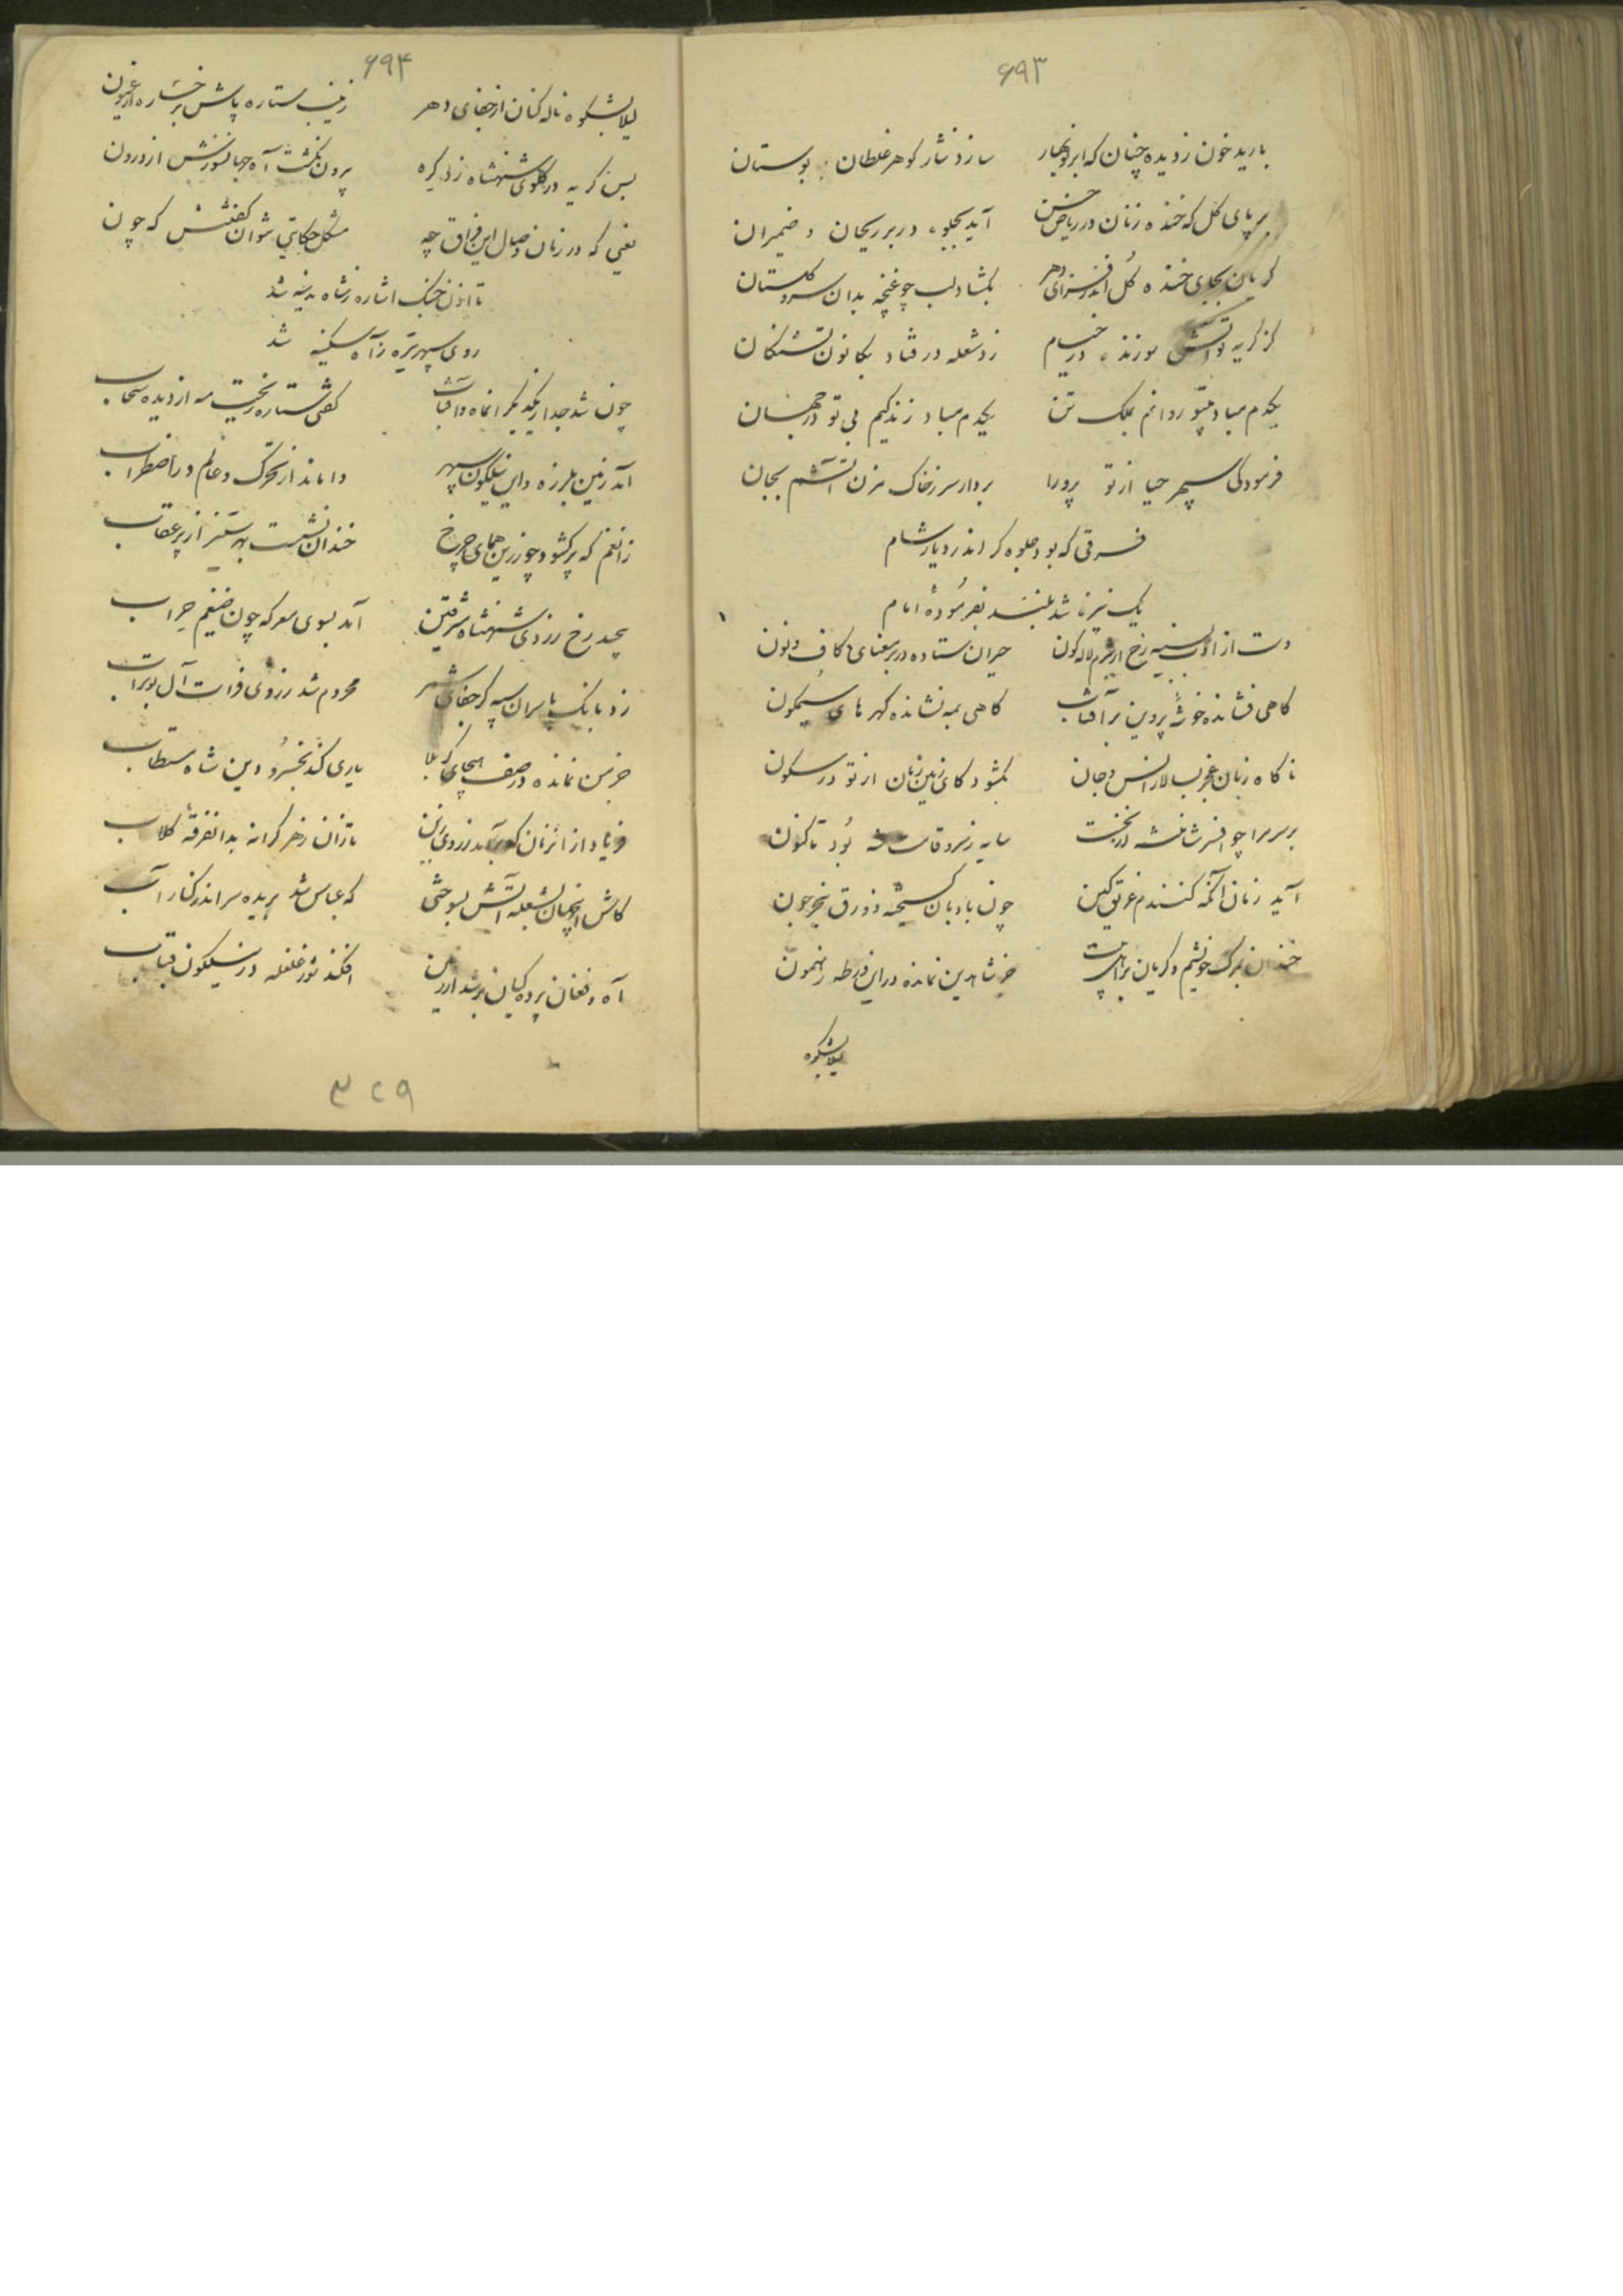 ۶۹۳
بارید خون ز دیده چنان که ابر نوبهار سازد نثار گوهر غلطان بوستان
بر پای گل که خنده زنان در ریاض حسن آید بجلوه در بر ریحان و ضیمران
گریان بجای خنده گل اندر سرای دهر بگشاد لب چو غنچه بدان سرو گلستان
کز گریه تو آتش سوزنده در خیام زد شعله در فتاد بکانون تشنگان
یکدم مباد بیتو روانم بملک تن یکدم مباد زندگیم بی تو در جهان
فرمود کی سپهر حیا از تو پرورا بردار سر ز خاک مزن آتشم بجان
فرقی که بود جلوه گر اندر دیار شام
یک نیزه شد بلند بفرموده امام
دست از ادب بسینه رخ از شرم لاله گون حیران ستاده در بر معنای کاف و نون
گاهی فشانده خوشه پروین بر آفتاب گاهی بمه نشانده گهرهای سیمگون
ناگاه زبان عجز بسالار انس و جان بگشود کای زمین و زمان از تو در سکون
بر سر مرا چو افسر شاهنشه درنخست سایه ز سرو قامت شه بُود تاکنون
آید زمان آنکه کنندم غریق کین چون بادبان گسیخته زورق ببحر خون
خندان بمرگ خویشم و گریان بر اهل بیت جز شاه دین نمانده در این ورطه رهنمون
لیلا بشکوه
۶۹۴
لیلا بشکوه ناله کنان از جفای دهر زینب ستاره پاش برخساره از عیون
بس گریه در گلوی شهنشاه زد گره بیرون نگشت آه جهانسوزش از درون
یعنی که در زمان وصال این فراق چه مشکل حکایتی نتوان گفتنش که چون
تا اذن جنگ اشاره ز شاه مدینه شد
روی سپهر تیره ز آه سکینه شد
چون شد جدا ز یکدیگر آنماه و آفتاب گفتی ستاره ریخت مه از دیده سحاب
آمد زمین بلرزه و این نیلگون سپهر واماند از تحرک و عالم در اضطراب
زانغم که پر گشود چو زرین همای چرخ خندان نشست بهر ستیز از پر عقاب
پیچید رخ ز روی شهنشاه مشرقین آمد بسوی معرکه چون ضیغم حراب
زد بانگ با سران سپه کز جفای شمر محروم شد ز روی فرات آل بوتراب
جز من نمانده در صف هیجای کربلا یاری کند بخسرو دین شاه مستطاب
فریاد از آنزمان که برآمد ز روی زین تازان ز هر کرانه بدانفرقه کلاب
کاش آنچنان بشعله آتش بسوختی که عباس شد بریده سر اندر کنار آب
آه و فغان پرده گیان بر شد از زمین افکند شور غلغله در نیلگون قباب
۳۲۹